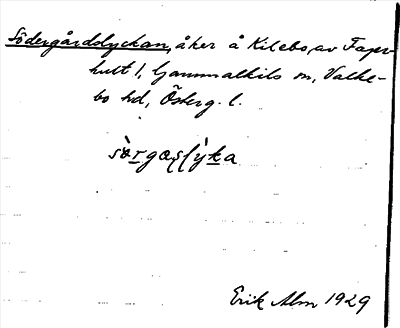 Södergårdslyckan, åker å Kilebo, av Fager-
hult 1, Gammalkils sn, Valke-
bo hd, Österg. l.
sær̀gæsl̀yka
Erik Alm 1929